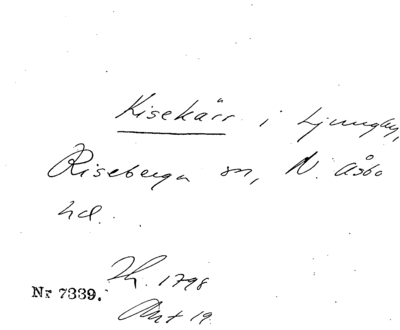 Kisekärr i Ljungby,
Riseberga sn, N. Åsbo
hd.
Th. 1798
Nr 7339.
Akt 19